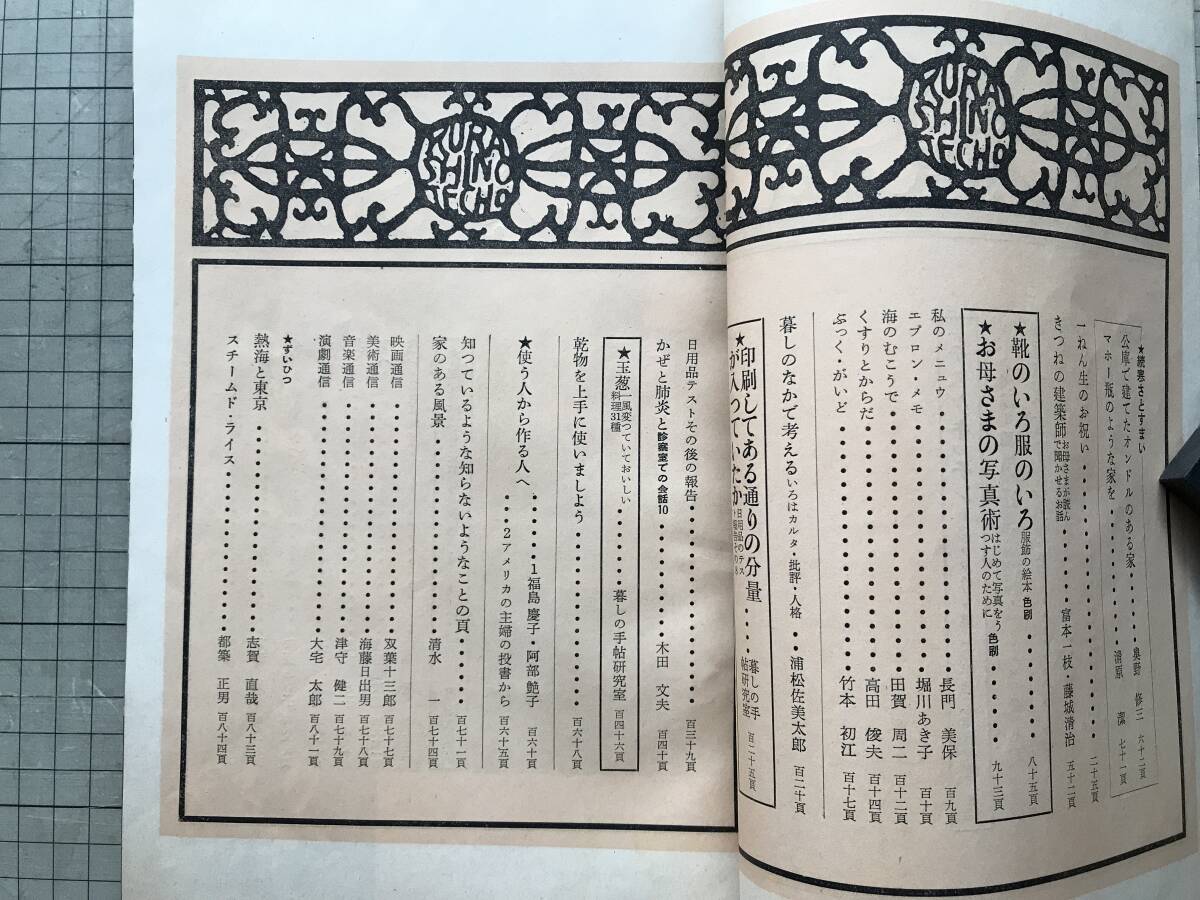 KURA
SHINO
TECHO
KURA
SHINO
TECHO
★続寒さとすまい
公庫で建てたオンドルのある家・・・奥野 修三 六十二頁
マホー瓶のような家を・・・清原 潔 七十一頁
一ねん生のお祝い・・・二十五頁
きつねの建築師 お母さまが読んで聞かせるお話・・・富本一枝・藤城清治 五十二頁
★靴のいろ服のいろ 服飾の絵本 色刷・・・八十五頁
★お母さまの写真術 はじめて写真をうつす人のために 色刷・・・九十三頁
私のメニュウ・・・長門 美保 百九頁
エプロン・メモ・・・堀川あき子 百十頁
海のむこうで・・・田賀 周二 百十二頁
くすりとからだ・・・高田 俊夫 百十四頁
ぶっく・がいど・・・竹本 初江 百十七頁
暮しのなかで考える いろはカルタ・批評・人格・・浦松佐美太郎 百二十頁
★印刷してある通りの分量が入つていたか・・・暮しの手帖研究室 百二十五頁
日用品テストその後の報告・・・百三十九頁
かぜと肺炎と 診察室での会話10・・・木田 文夫 百四十頁
★玉葱 一風変つていておいしい料理31種・・・暮しの手帖研究室 百四十六頁
乾物を上手に使いましよう・・・百六十八頁
★使う人から作る人へ・・・1福島慶子・阿部艶子 百六十頁
・・・2アメリカの主婦の投書から 百六十五頁
知つているような知らないようなことの頁・・・百七十一頁
家のある風景・・・清水 一 百七十四頁
映画通信・・・双葉十三郎 百七十七頁
美術通信・・・海藤日出男 百七十八頁
音楽通信・・・津守 健二 百七十九頁
演劇通信・・・大宅 太郎 百八十一頁
★ずいひつ
熱海と東京・・・志賀 直哉 百八十三頁
スチームド・ライス・・・都築 正男 百八十四頁